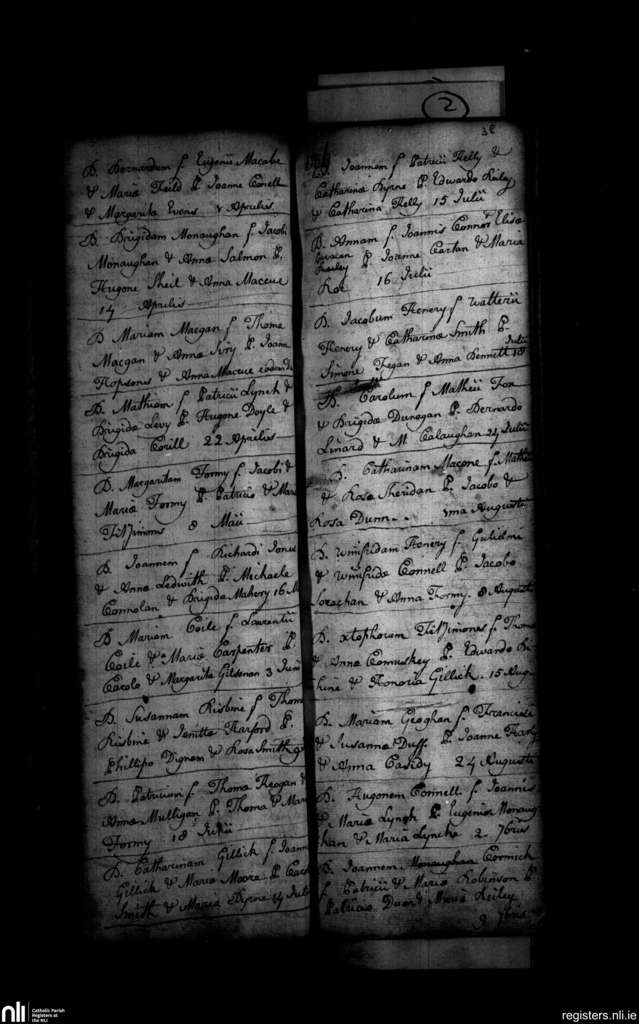 B. Bernardum f Eugenii Macabe
& Maria Feild P Joanne Conell
& Margarita Evers Aprilis
B. Brigidam Monaughan f Jacobi
Monaughan & Anna Salmon P.
Hugone Sheil & Anna Maccue
14 Aprilis
B Mariam Macgan f Thoma
Macgan & Anna Ivry P. Joanne
Hopsons & Anna Maccue eodem die
B. Mathiam f Patricii Lynch &
Brigida Levy P. Hugone Doyle &
Brigida Corill 22 Aprilis
B. Margaritam Formy f Jacobi &
Maria Formy P Patricio & Maria
8 Maii
B. Joannem f Richardi Jones
& Anna Ledwith P. Michaele
Connolan & Brigida Makery 16
B Mariam Coile f Laurentii
Coile & Maria Carpenter P.
Carolo & Margarita Gilsenan 3 Junii
B. Susannam Kisbine f Thoma
Kisbine & Harford P.
Phillipo Dignam & Rosa Smith
B. Patricium f. Thoma Keogan &
Anna Mulligan P. Thoma & Maria
Formy 18 Julii
B. Catharinam Gillick f Joannis
Gillick & Maria Moore P
Smith & Maria Byrne 14 Julii
2
38
B. Joannem f Patricii Kelly &
Catharina Byrne P. Edwardo Kieley
& Catharina Kelly 15 Julii
B. Annam f. Joannis Connor Elisa
P Joanne Cartan & Maria
Roe 16 Julii
B. Jacobum Henery f walterii
Henery & Catharina Smith P.
Simone Fegan & Anna Bennett 18 Julii
B. Carolum f Matheii Fox
& Brigida Dunegan P. Bernardo
Linard & M Calaughan 24 Julii
B. Catharinam Macone f. Mathei
& Rosa Sheridan P Jacobo &
Rosa Dunn 1ma Augusti
B. Winifridam Henery f Gulielmi
& Winifride Connell P Jacobo
& Anna Formy. 8 Augusti
B. xtophorum Fitzsimones f. Thoma
& Anna Comuskey P. Edwardo
& Honoria Gillick. 15 Augusti
B. Mariam Geoghan f. Francisci
& Susanna Duff P Joanne
& Anna Casidy 24 Augusti
B. Hugonem Connell f Joannis
& Maria Lynch P Eugenio Monaug
han & Maria Lynche 2. 7bris
B. Joannem Monaughan Cormick
f Patricii & Maria Robinson P
Patricio & Maria Keiley
7bris
nli
Catholic Parish
Registers at
the NLI
registers.nli.ie